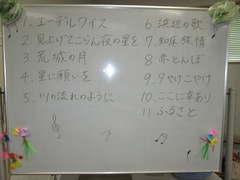 1. エーデルワイス
2. 見上げてごらん夜の星を
3. 荒城の月
4. 星に願いを
5. 川の流れのように
6. 浜辺の歌
7. 知床旅情
8. 赤とんぼ
9. 夕やけこやけ
10. ここに幸あり
11. ふるさと